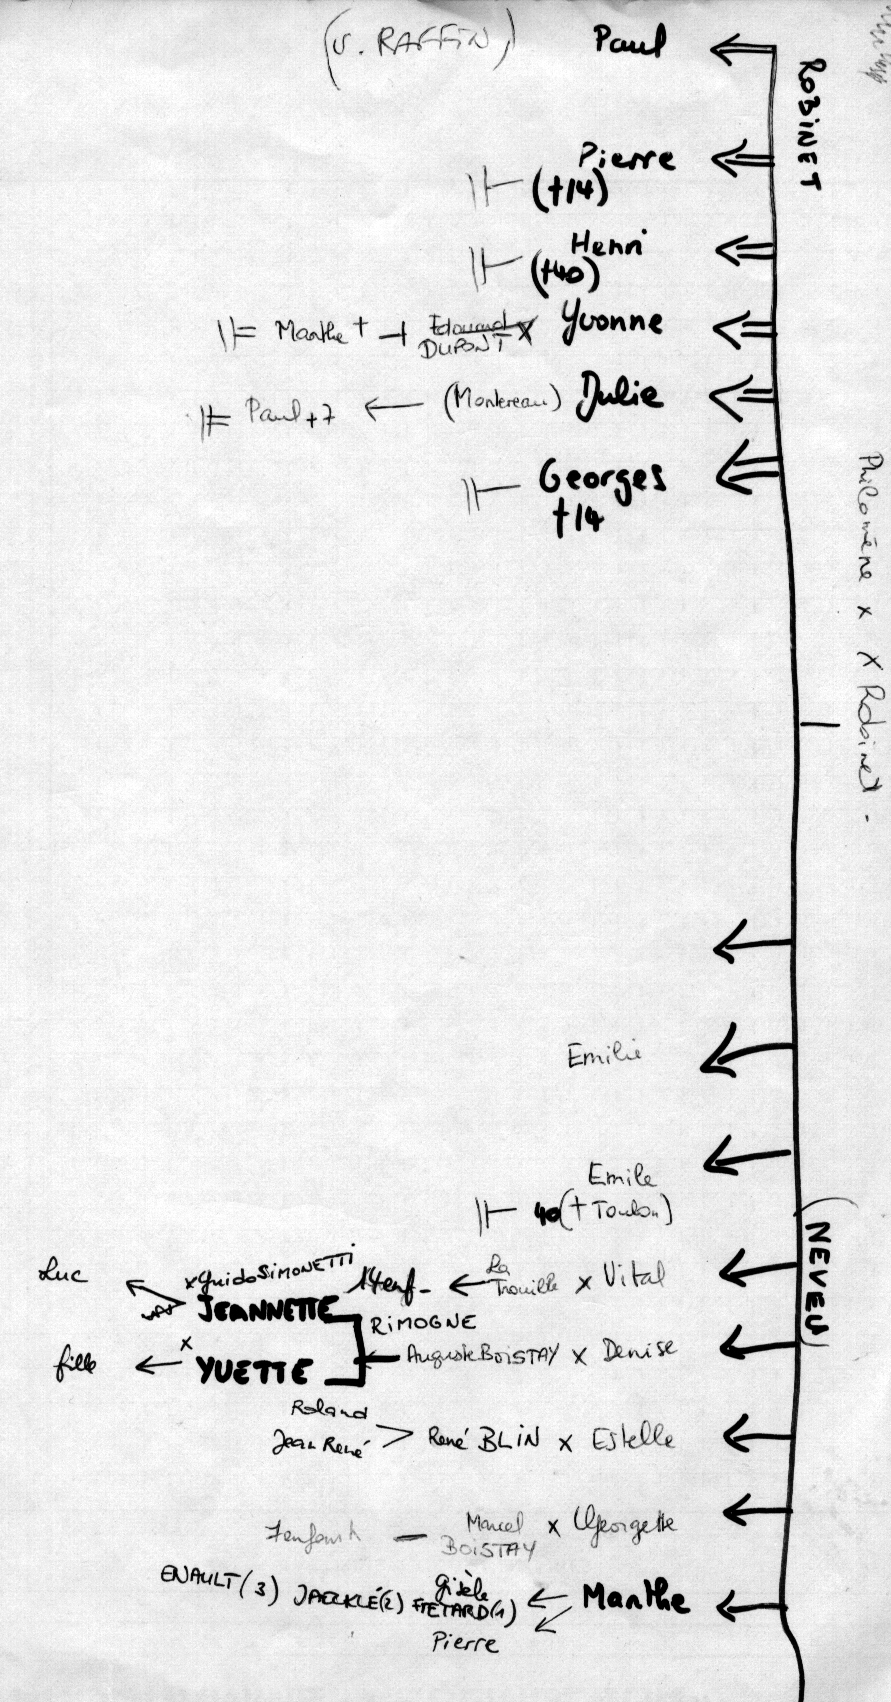 (v. RAFFIN)
Paul
ROBINET
Pierre
(†14)
Henri
(†40)
Marthe †
Edouard
DUPONT x
Yvonne
Paul +7
(Montereau)
Julie
Georges
†14
Philomène x x Robinet.
Emilie
Emile
40 († Toulon)
(NEVEU)
Luc
x Guido SIMONETTI
JEANNETTE
14 enf.
La Trouille x Vital
RIMOGNE
fille
x
YVETTE
Auguste BOISTAY x Denise
Roland
Jean René
René BLIN x Estelle
7 enfants
Marcel
BOISTAY
x Georgette
ENAULT (3) JAECKLÉ (2)
Gisèle
FRETARD (1)
Marthe
Pierre